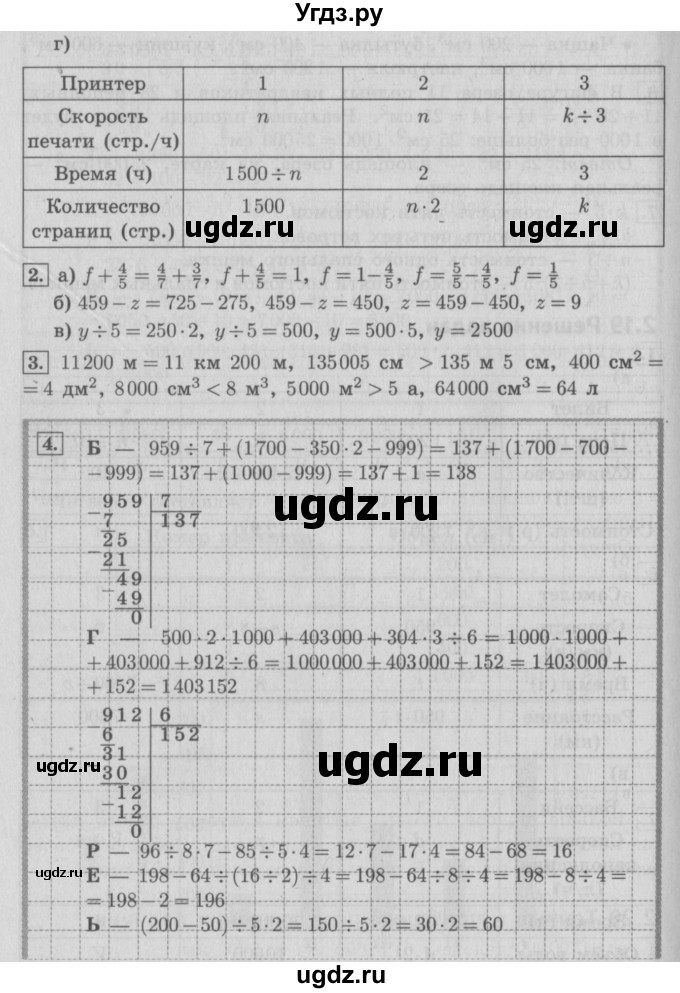 Угдз.ру
г)
Принтер 1 2 3
Скорость печати (стр./ч) n n k÷3
Время (ч) 1500÷n 2 3
Количество страниц (стр.) 1500 n·2 k
2. а) f + 4/7 = 4/7 + 3/7, f + 4/5 = 1, f = 1 − 4/5, f = 5/5 − 4/5, f = 1/5
б) 459 − z = 725 − 275, 459 − z = 450, z = 459 − 450, z = 9
в) y ÷ 5 = 250 · 2, y ÷ 5 = 500, y = 500 · 5, y = 2500
3. 11200 м = 11 км 200 м, 135005 см > 135 м 5 см, 400 см² =
= 4 дм², 8000 см³ < 8 м³, 5000 м² > 5 а, 64000 см³ = 64 л
4. Б — 959 ÷ 7 + (1700 − 350 · 2 − 999) = 137 + (1700 − 700 −
− 999) = 137 + (1000 − 999) = 137 + 1 = 138
− 959 | 7
7 | 137
− 25
21
− 49
49
0
Г — 500 · 2 · 1000 + 403000 + 304 · 3 ÷ 6 = 1000 · 1000 +
+ 403000 + 912 ÷ 6 = 1000000 + 403000 + 152 = 1403000 +
+ 152 = 1403152
− 912 | 6
6 | 152
− 31
30
− 12
12
0
Р — 96 ÷ 8 · 7 − 85 ÷ 5 · 4 = 12 · 7 − 17 · 4 = 84 − 68 = 16
Е — 198 − 64 ÷ (16 ÷ 2) ÷ 4 = 198 − 64 ÷ 8 ÷ 4 = 198 − 8 ÷ 4 =
= 198 − 2 = 196
Ь — (200 − 50) ÷ 5 · 2 = 150 ÷ 5 · 2 = 30 · 2 = 60
ugdz.ru
ugdz.ru
ugdz.ru
ugdz.ru
ugdz.ru
ugdz.ru
ugdz.ru
ugdz.ru
ugdz.ru
ugdz.ru
ugdz.ru